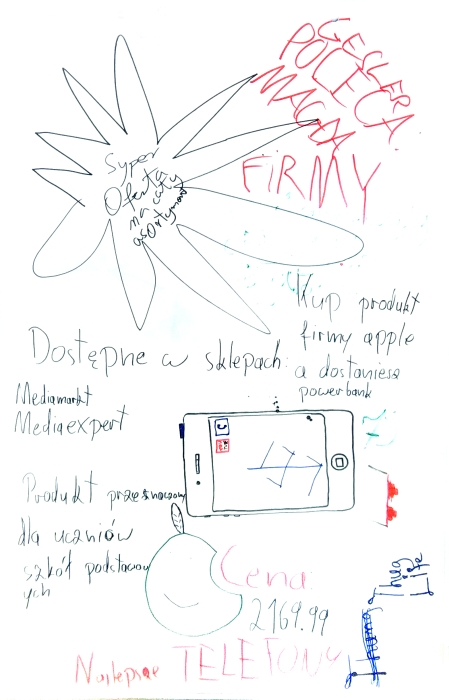 GESLER
POLECA
MAGDA
FiRMY
Syper
Oferta
na cały
asortyment
Kup produkt
firmy apple
a dostaniesz
powerbank
Dostępne w sklepach:
Mediamarkt
Mediaexpert
Produkt przeznaczony
dla uczniów
szkół podstawow
ych
Cena:
2169.99
Najlepsze TELEFONY
Thug
Life